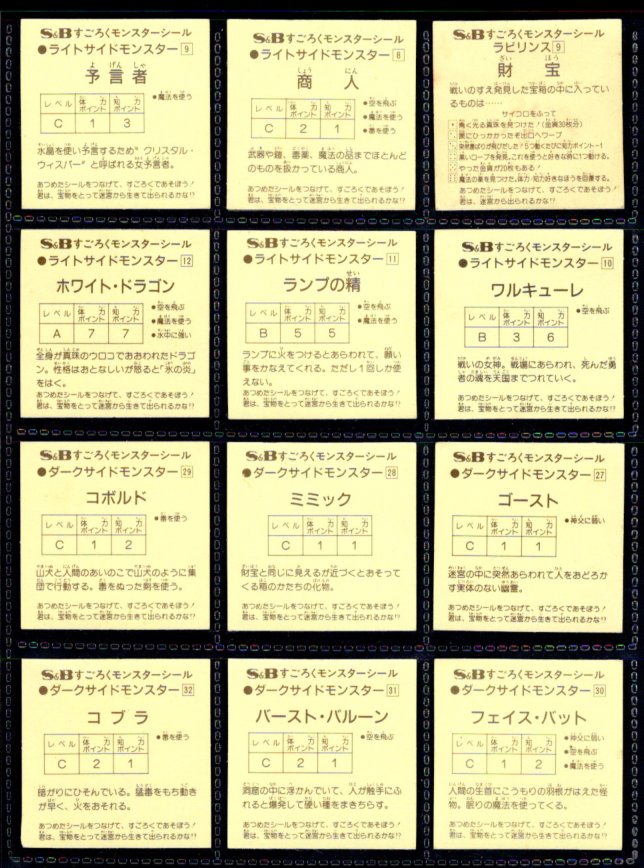 S&Bすごろくモンスターシール
●ライトサイドモンスター 9
予言者
レベル 体力ポイント 知力ポイント
C 1 3
●魔法を使う
水晶を使い予言するため“クリスタル・
ウィスパー”と呼ばれる女予言者。
あつめたシールをつなげて、すごろくであそぼう!
君は、宝物をとって迷宮から生きて出られるかな!?
S&Bすごろくモンスターシール
●ライトサイドモンスター 8
商人
レベル 体力ポイント 知力ポイント
C 2 1
●空を飛ぶ
●魔法を使う
●毒を使う
武器や鎧、毒薬、魔法の品までほとんど
のものを扱かっている商人。
あつめたシールをつなげて、すごろくであそぼう!
君は、宝物をとって迷宮から生きて出られるかな!?
S&Bすごろくモンスターシール
ラビリンス 9
財宝
戦いのすえ発見した宝箱の中に入って
いるものは……
サイコロをふって
青く光る真珠を見つけた!(金貨30枚分)
罠にひっかかったぞ出口へワープ
突然毒ばりが飛びだした!5つ動くたびに知力ポイント-1
黒いローブを発見。これを使うと好きな時に1つ動ける。
やった金貨が20枚もある!
魔法の薬を見つけた。体力・知力好きなほうを回復する。
あつめたシールをつなげて、すごろくであそぼう!
君は、迷宮から生きて出られるかな!?
S&Bすごろくモンスターシール
●ライトサイドモンスター 12
ホワイト・ドラゴン
レベル 体力ポイント 知力ポイント
A 7 7
●空を飛ぶ
●魔法を使う
●水中に強い
全身が真珠のウロコでおおわれたドラゴ
ン。性格はおとなしいが怒ると「氷の炎」
をはく。
あつめたシールをつなげて、すごろくであそぼう!
君は、宝物をとって迷宮から生きて出られるかな!?
S&Bすごろくモンスターシール
●ライトサイドモンスター 11
ランプの精
レベル 体力ポイント 知力ポイント
B 5 5
●空を飛ぶ
●魔法を使う
ランプに火をつけるとあらわれて、願い
事をかなえてくれる。ただし1回しか使
えない。
あつめたシールをつなげて、すごろくであそぼう!
君は、宝物をとって迷宮から生きて出られるかな!?
S&Bすごろくモンスターシール
●ライトサイドモンスター 10
ワルキューレ
レベル 体力ポイント 知力ポイント
B 3 6
●空を飛ぶ
戦いの女神。戦場にあらわれ、死んだ勇
者の魂を天国までつれていく。
あつめたシールをつなげて、すごろくであそぼう!
君は、宝物をとって迷宮から生きて出られるかな!?
S&Bすごろくモンスターシール
●ダークサイドモンスター 29
コボルド
レベル 体力ポイント 知力ポイント
C 1 2
●毒を使う
山犬と人間のあいのこで山犬のように集
団で行動する。毒をぬった剣を使う。
あつめたシールをつなげて、すごろくであそぼう!
君は、宝物をとって迷宮から生きて出られるかな!?
S&Bすごろくモンスターシール
●ダークサイドモンスター 28
ミミック
レベル 体力ポイント 知力ポイント
C 1 1
財宝と同じに見えるが近づくとおそって
くる箱のかたちの化物。
あつめたシールをつなげて、すごろくであそぼう!
君は、宝物をとって迷宮から生きて出られるかな!?
S&Bすごろくモンスターシール
●ダークサイドモンスター 27
ゴースト
レベル 体力ポイント 知力ポイント
C 1 1
●神父に弱い
迷宮の中に突然あらわれて人をおどろか
す実体のない幽霊。
あつめたシールをつなげて、すごろくであそぼう!
君は、宝物をとって迷宮から生きて出られるかな!?
S&Bすごろくモンスターシール
●ダークサイドモンスター 32
コブラ
レベル 体力ポイント 知力ポイント
C 2 1
●毒を使う
暗がりにひそんでいる。猛毒をもち動き
が早く、火をおそれる。
あつめたシールをつなげて、すごろくであそぼう!
君は、宝物をとって迷宮から生きて出られるかな!?
S&Bすごろくモンスターシール
●ダークサイドモンスター 31
バースト・バルーン
レベル 体力ポイント 知力ポイント
C 2 1
●空を飛ぶ
洞窟の中に浮かんでいて、人が触手にふ
れると爆発して硬い種をまきちらす。
あつめたシールをつなげて、すごろくであそぼう!
君は、宝物をとって迷宮から生きて出られるかな!?
S&Bすごろくモンスターシール
●ダークサイドモンスター 30
フェイス・バット
レベル 体力ポイント 知力ポイント
C 1 2
●神父に弱い
●空を飛ぶ
●魔法を使う
人間の生首にこうもりの羽根がはえた怪
物。眠りの魔法を使ってくる。
あつめたシールをつなげて、すごろくであそぼう!
君は、宝物をとって迷宮から生きて出られるかな!?